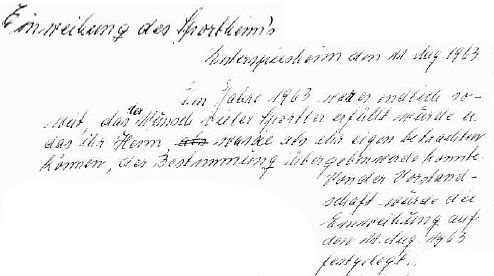 Einweihung des Sportheim's
Unterspiesheim den 11. Aug. 1963
Im Jahre 1963 war es endlich so-
weit, das der Wunsch vieler Sportler erfüllt wurde u.
das ihr Heim, als wande als ihr eigen betrachten
können, der Bestimmung übergeben werde konnte.
Von der Vorstand-
schaft wurde die
Einweihung auf
den 11. Aug. 1963
festgelegt.